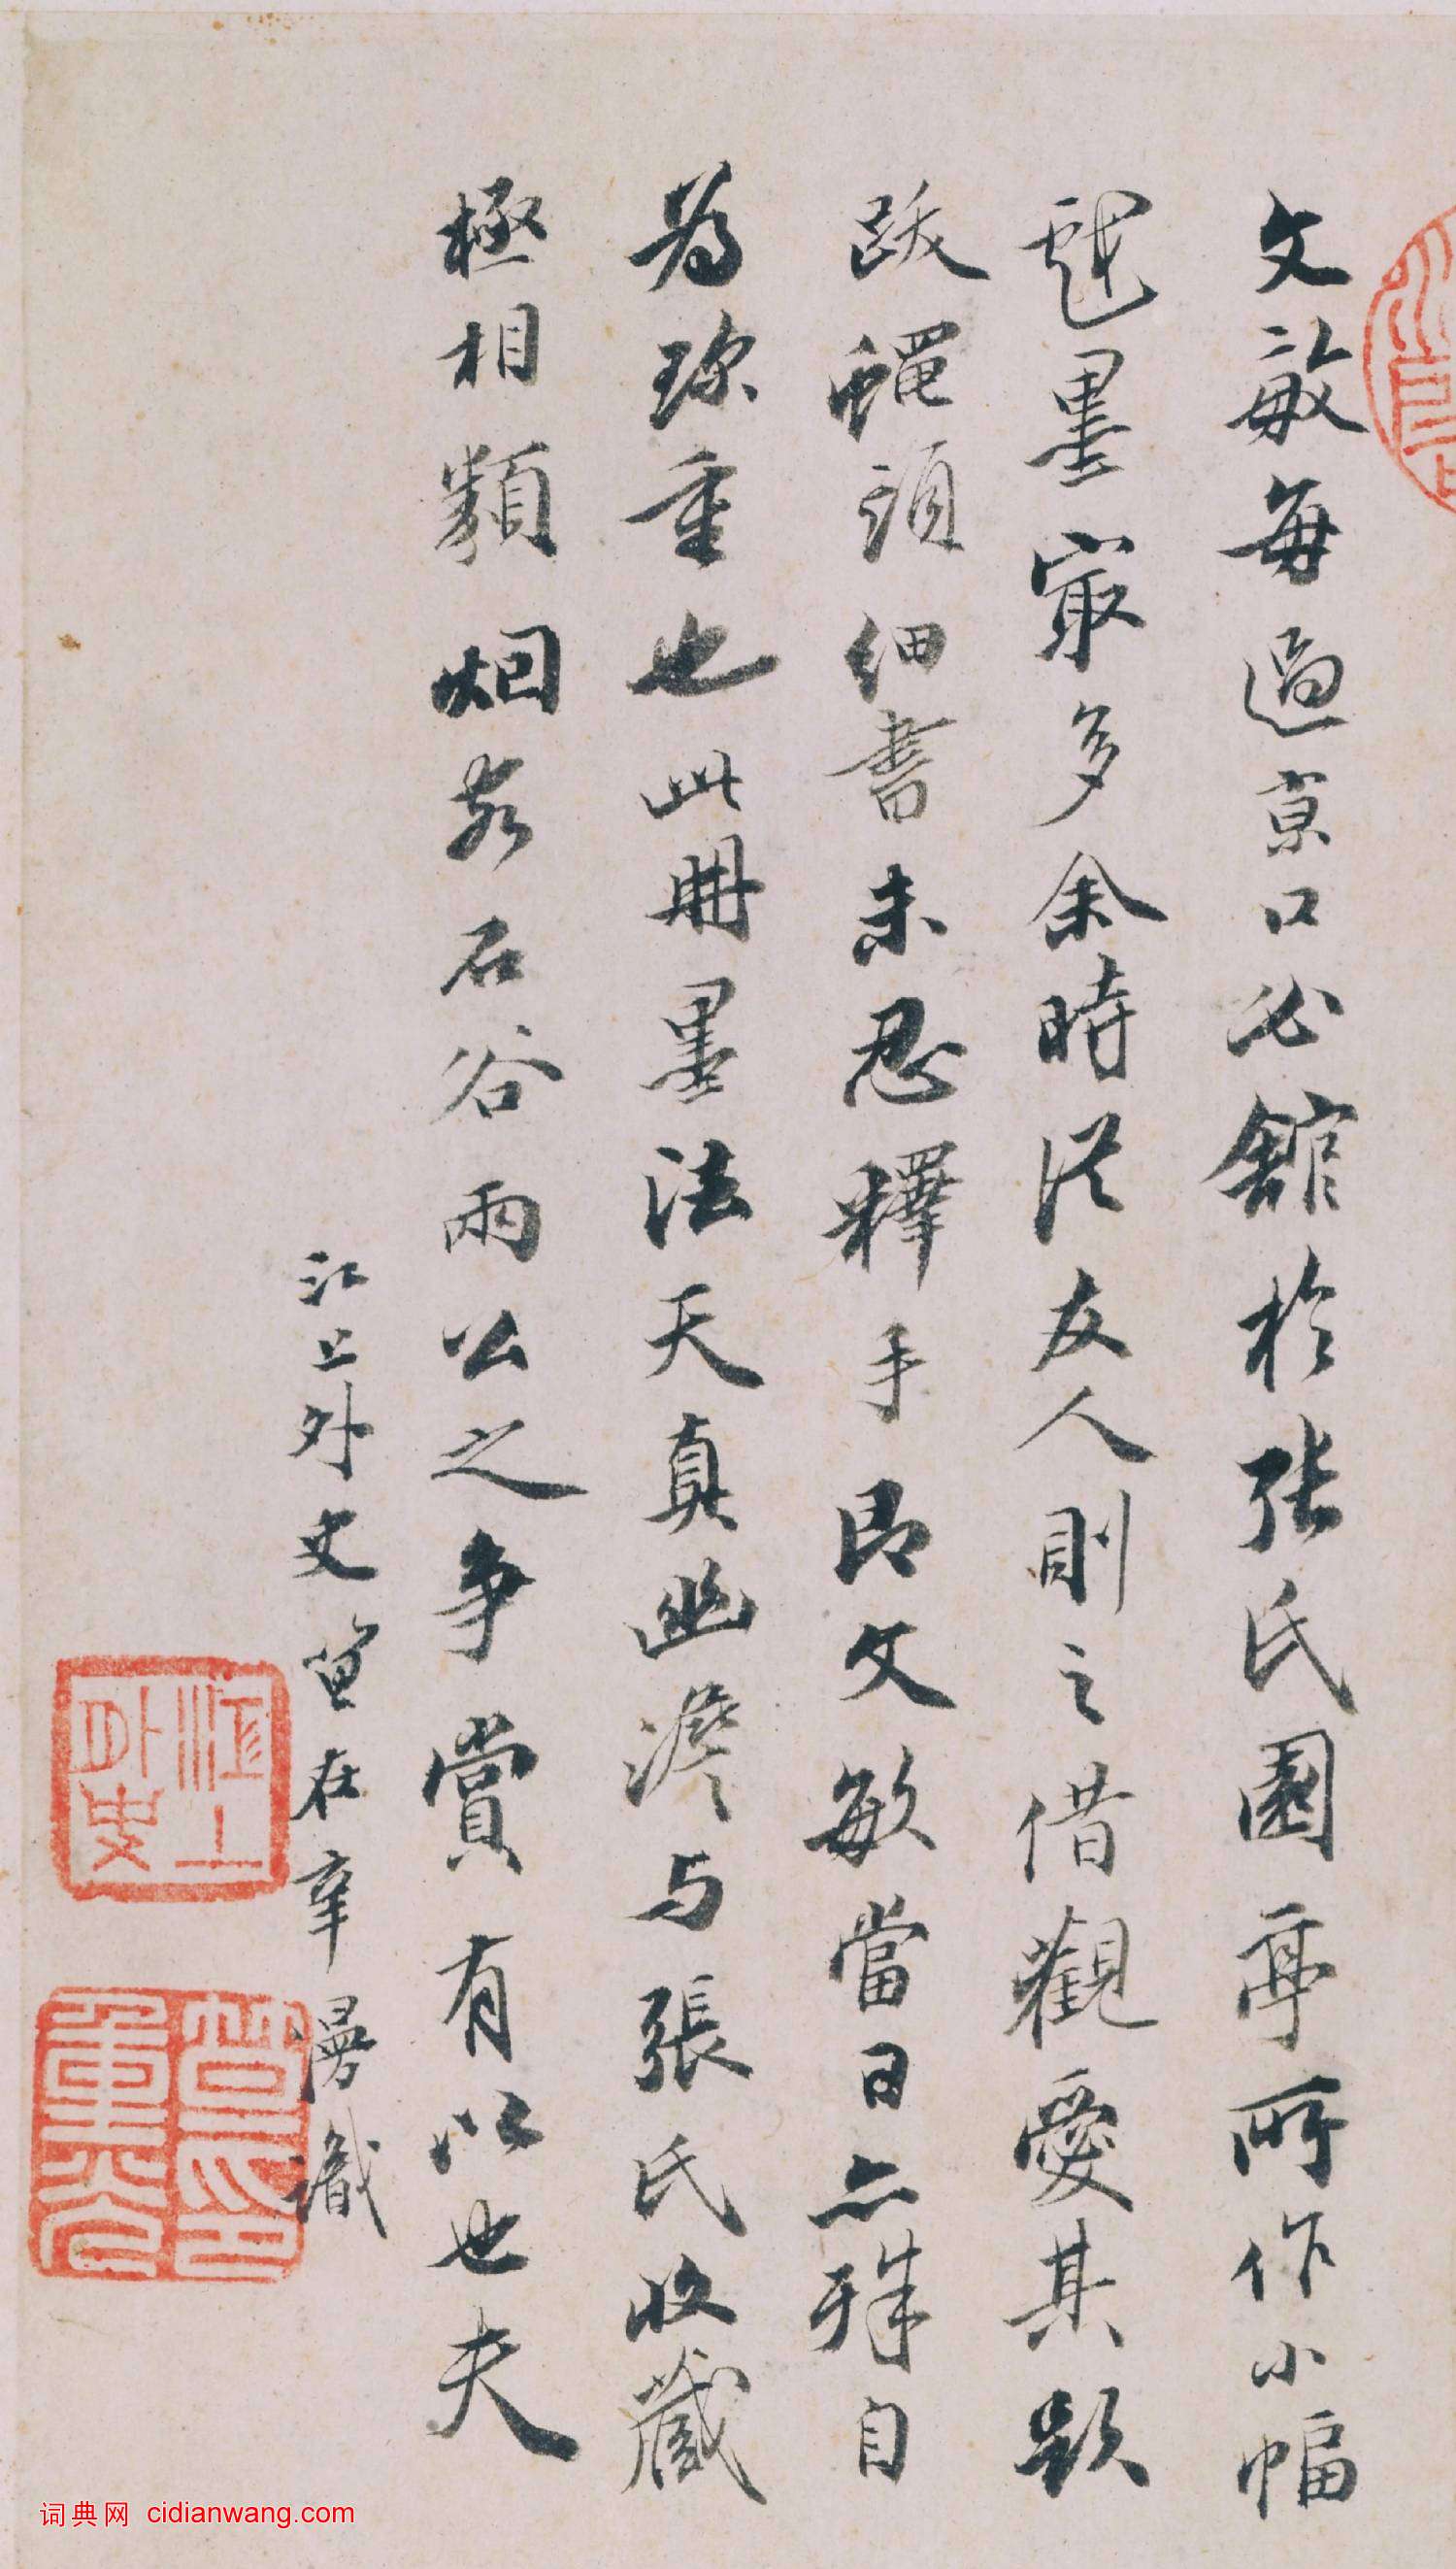 文敏每過京口必館於張氏園亭所作小幅
戲墨最多余時從友人則之借觀愛其題
跋蠅頭細書未忍釋手即文敏當日亦殊自
為珍重也此冊墨法天真幽澹与張氏收藏
極相類烟客石谷兩公之争賞有以也夫
江上外史笪在辛漫識
江上外史
笪重光印
词典网 cidianwang.com